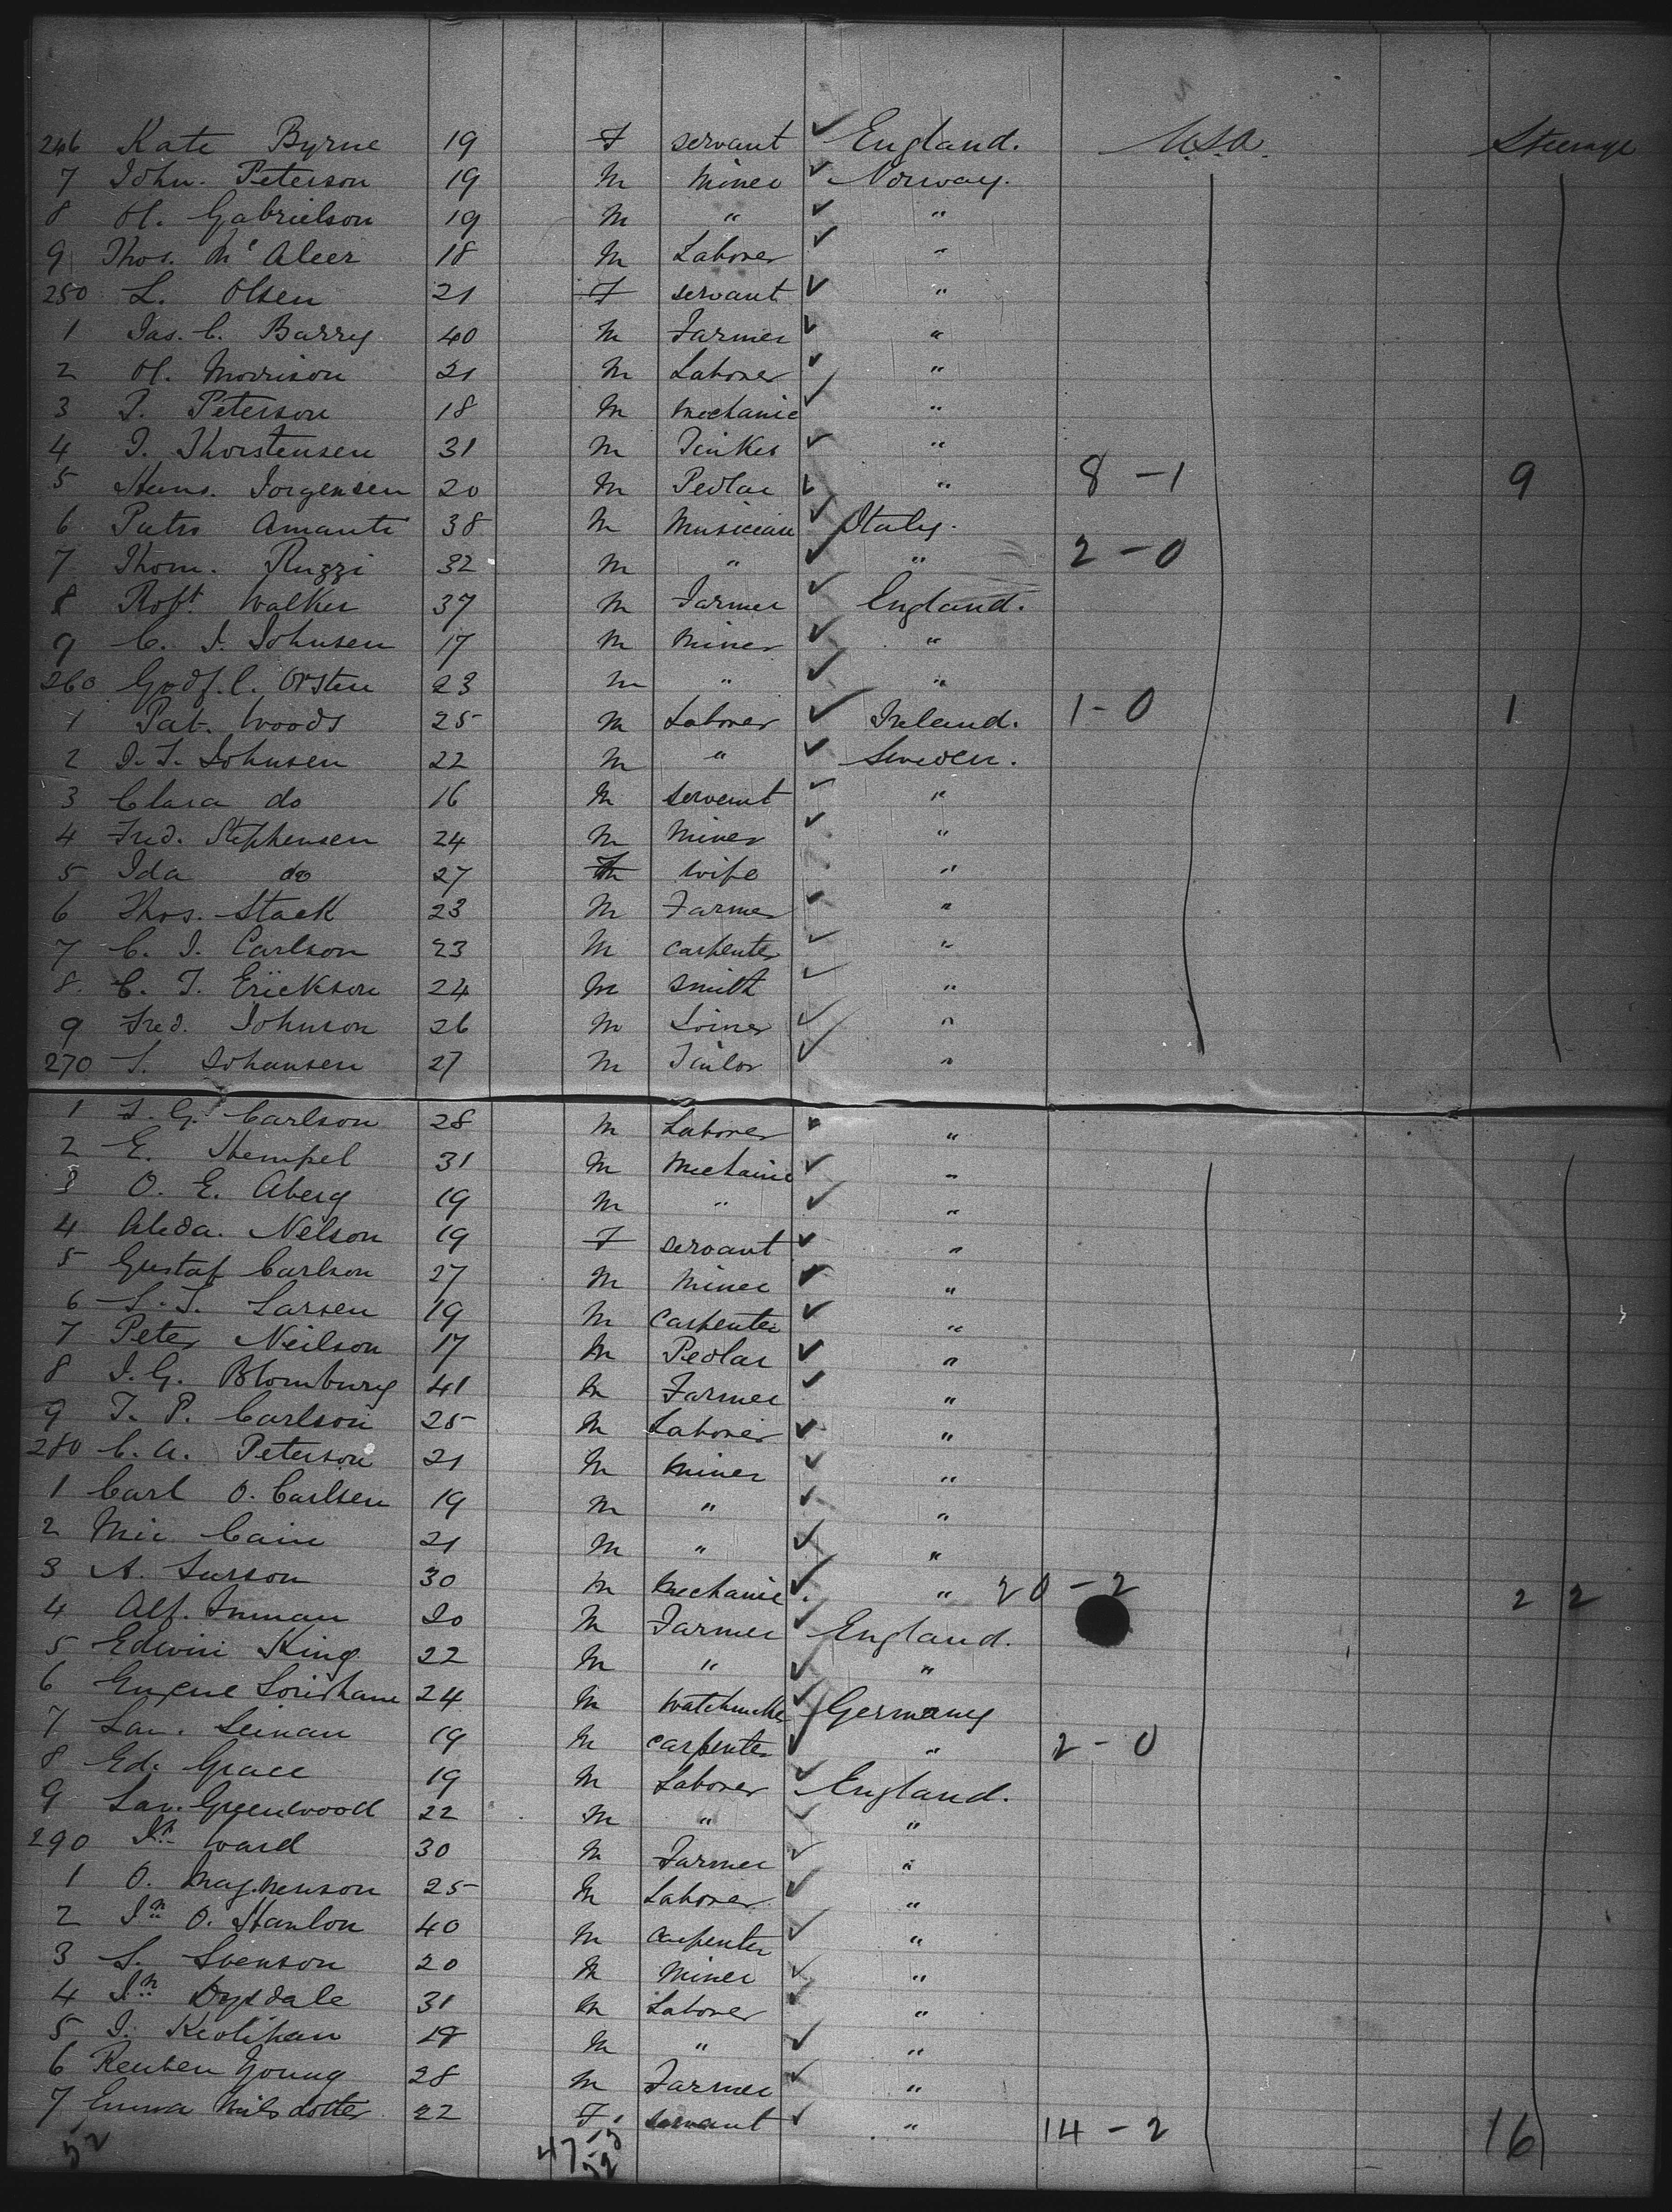 246 Kate Byrne 19 F servant ✓ England. U.S.A. Steerage
7 John. Peterson 19 M Miner ✓ Norway.
8 H. Gabrielson 19 M " ✓ "
9 Thos. McAleer 18 M Laborer ✓ "
250 L. Olsen 21 F servant ✓ "
1 Jas. C. Barry 40 M Farmer ✓ "
2 H. Morrison 21 M Laborer ✓ "
3 P. Peterson 18 M Mechanic ✓ "
4 J. Thorstensen 31 M Tinker ✓ "
5 Hans. Jorgensen 20 M Pedlar ✓ " 8 - 1 9
6 Amanti 38 M Musician ✓ Italy.
7 Thom. Ruzzi 32 M " ✓ " 2 - 0
8 Robt Walker 37 M Farmer ✓ England.
9 C. J. Johnsen 17 M Miner ✓ "
260 Godf. C. Orsten 23 M " ✓ "
1 Pat. Woods 25 M Laborer ✓ Ireland. 1 - 0 1
2 J. T. Johnsen 22 M " ✓ Sweden.
3 Clara do 16 M servant ✓ "
4 Fred. Stephensen 24 M Miner ✓ "
5 Ida do 27 F wife "
6 Thos. Stack 23 M Farmer ✓ "
7 C. J. Carlson 23 M carpenter ✓ "
8. C. T. Erickson 24 M smith ✓ "
9 Fred. Johnson 26 M Joiner ✓ "
270 S. Johansen 27 M Tailor ✓ "
1 J. G. Carlson 28 M Laborer ✓ "
2 E. Hempel 31 M Mechanic ✓ "
3 O. E. Aberg 19 M " ✓ "
4 Alida. Nelson 19 F servant ✓ "
5 Gustaf Carlson 27 M Miner ✓ "
6 S. T. Larsen 19 M Carpenter ✓ "
7 Peter Neilson 17 M Pedlar ✓ "
8 J. G. Blomburg 41 M Farmer ✓ "
9 T. P. Carlson 25 M Laborer ✓ "
280 C. A. Peterson 21 M Miner ✓ "
1 Carl O. Carlsen 19 M " ✓ "
2 Mic Cain 21 M " ✓ "
3 A. Larson 30 M Mechanic ✓ " 20 - 2 22
4 Alf. Inman 20 M Farmer ✓ England.
5 Edwin King 22 M " ✓ "
6 Eugene 24 M Watchmaker ✓ Germany
7 Lau. Leinan 19 M carpenter ✓ " 2 - 0
8 Ed. Grace 19 M Laborer ✓ England.
9 Lau. Greenwood 22 M " ✓ "
290 Jn Ward 30 M Farmer ✓ "
1 O. Magnenson 25 M Laborer ✓ "
2 Jn O. Hanlon 40 M Carpenter ✓ "
3 S. Svenson 20 M Miner ✓ "
4 Jn Drysdale 31 M Laborer ✓ "
5 J. Keolihan 18 M " ✓ "
6 Reuben Young 28 M Farmer ✓ "
7 Emma Nilsdotter 22 F. servant ✓ " 14 - 2 16
52 47 - 5
52